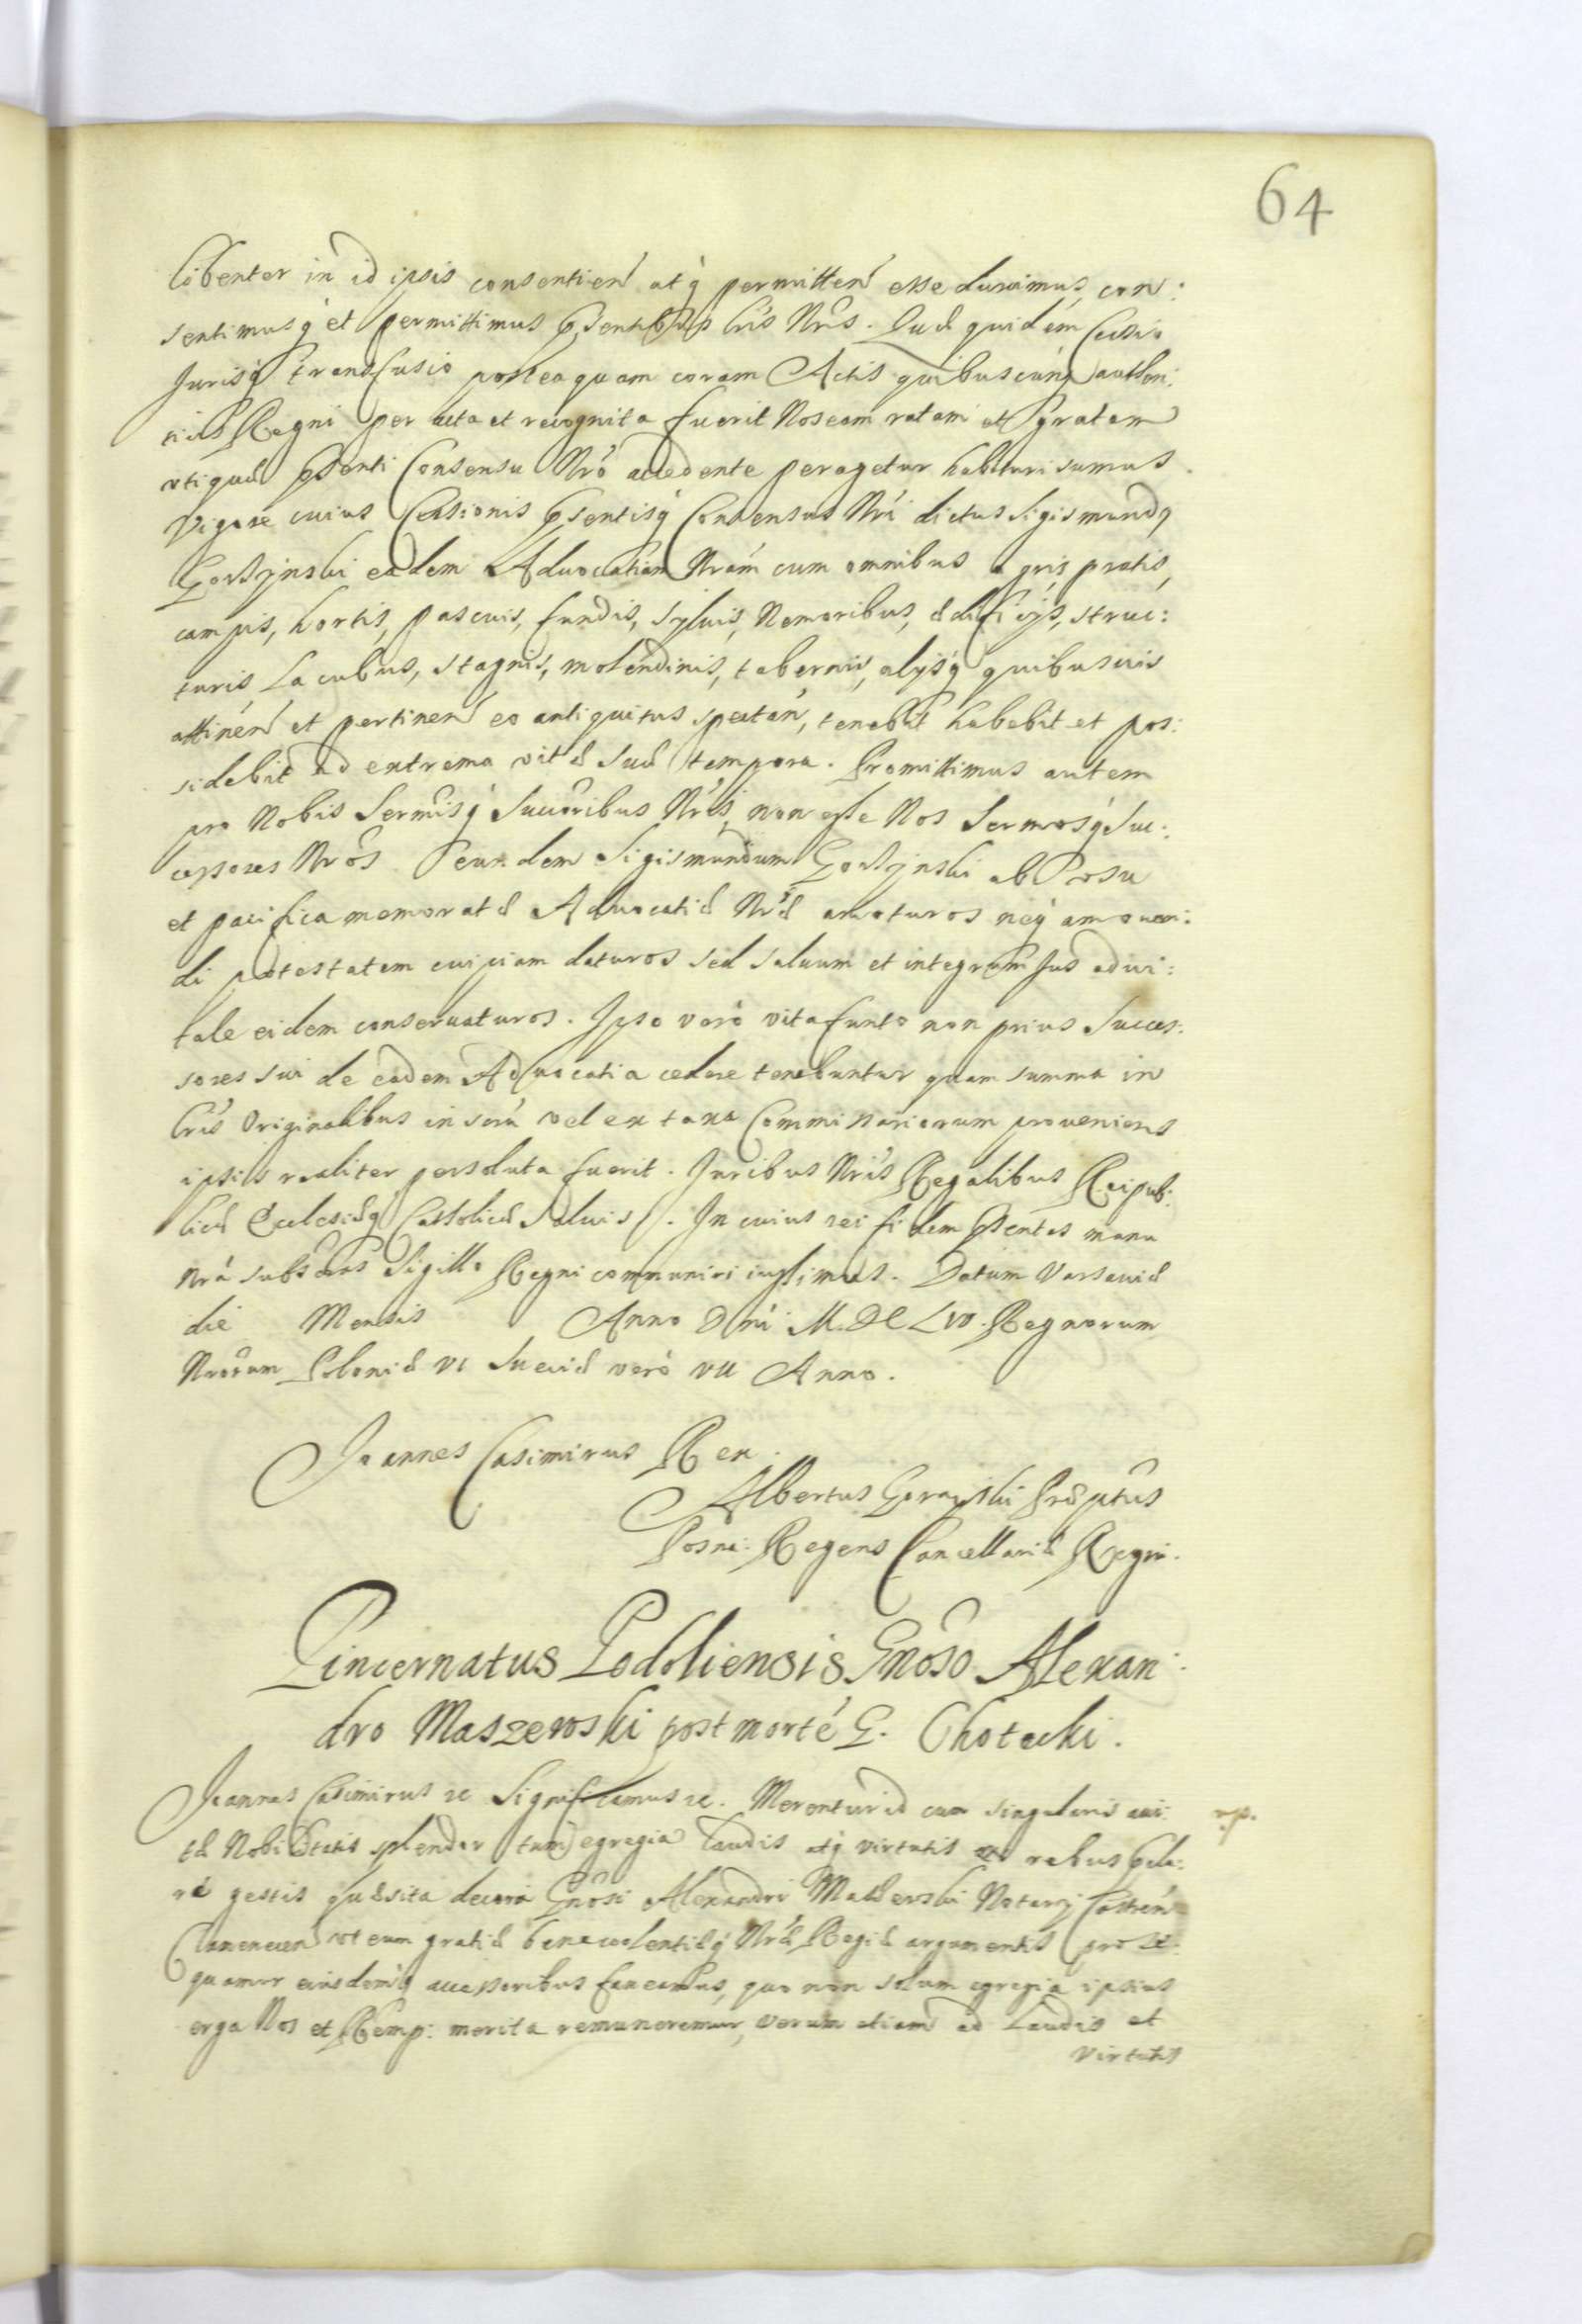 64
libenter in id ipsis consentien̄ atq́ permitten̄ esse duximus, con:
sentimusq́ et permittimus pn̄tibus Lr̄is Nr̄is. Quæ quidem Cessio
Jurisq́ transfusio posteaquam coram Actis quibuscunq authen:
ticis Regni per acta et recognita fuerit Nos eam ratam et gratam
utiquæ pn̄senti Consensu Nr̄o accedente peragetur habituri sumus.
Vigore cuius Cessionis pn̄sentisq́ Consensus Nr̄i dictus Sigismundq
eadem Advocatiam Nram cum omnibus agris pratis,
campis, hortis, pascuis, fundis, syluis, Nemoribus, ædificijs, struc:
turis Lacubus, stagnis, molendinis, tabernis, alijsq́ quibusuis
attinen̄ et pertinen̄ eo antiquitus spectan̄, tenebit habebit et pos:
sidebit ad extrema vitæ suæ tempora. Promittimus autem
pro Nobis Sermisq́ Succoribus Nr̄is, non esse Nos Sermosq́ Suc:
cessores Nr̄os eundem Sigismundum ab Posu
et pacifica memoratæ Advocatiæ Nr̄æ amoturos neq́ amoven:
di potestatem cuipiam daturos sed saluum et integrum Jus advi:
tale eidem conseruaturos. Ipso verò vita functo non prius Succes:
sores sui de eadem Advocatia cedere tenebuntur quam summa in
Lr̄is Originalibus inserta vel ex taxa Commissariorum proueniens
ipsis realiter persoluta fuerit. Juribus Nr̄is Regalibus Reipub:
licæ Ecclesiæq Catholicæ saluis. In cuius rei fidem pn̄sentes manu
Nr̄a subscr̄as Sigillo Regni communiri iussimus. Datum Varsauiæ
die Mensis Anno Dni M.DC LIV. Regnorum
Nrorum Poloniæ VI Sueciæ verò VII Anno.
Joannes Casimirus Rex.
Albertus Præptus
Posna: Regens Cancellariæ Regni.
Pincernatus Podoliensis Gnoso Alexan:
dro Maszewski post morté G. Chotecki.
Joannes Casimirus rc Significamus rc. Merentur id cum singularis aui:
tæ Nobilitatis splendor tum egregia laudis atq́ virtutis rebus pcla:
ré gestis quæsita decora Gnosi Alexandri Maszewski Notarij Castren̄
Camenecen̄ ut eum gratiæ beneuolentiæq́ Nr̄æ Regiæ argumentis prose:
quamur eiusdemq accessoribus faueamus, quo non solum egregia ipsius
erga Nos et Remp: merita remuneremur, verum etiam ad Laudis et
virtutis